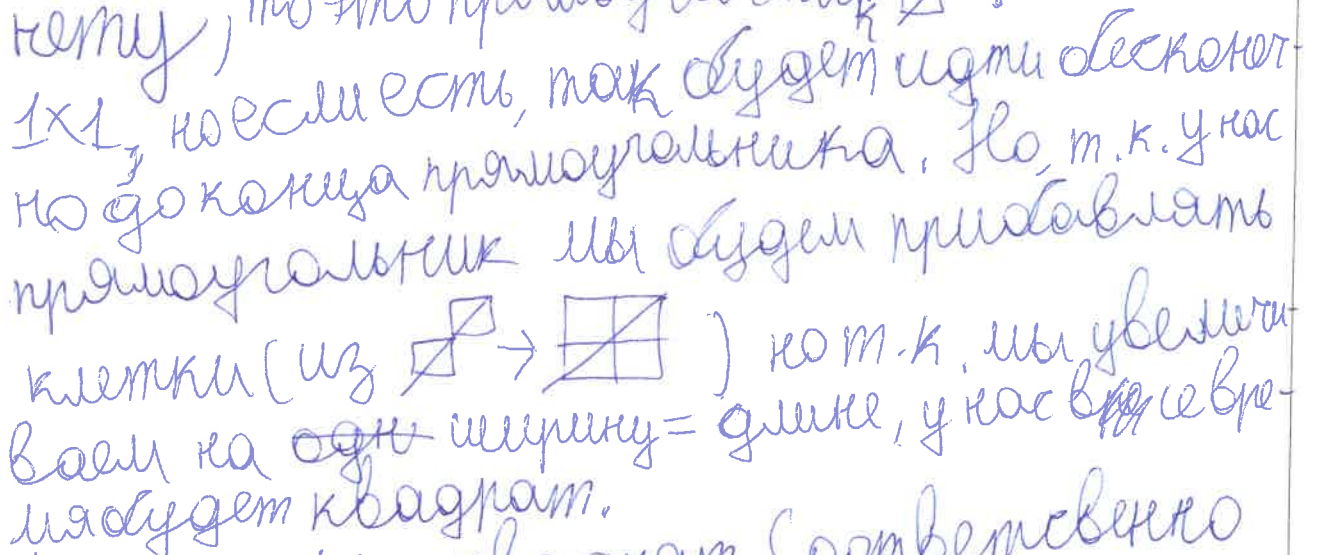 нету, то это прямоугольник
1×1, но если есть, так будет идти бесконеч-
но до конца прямоугольника. Но, т.к. у нас
прямоугольник мы будем прибавлять
клетки (из → ) но т.к. мы увеличи-
ваем на одн ширину = длине, у нас все вре-
мя будет квадрат.
(соответсвенно